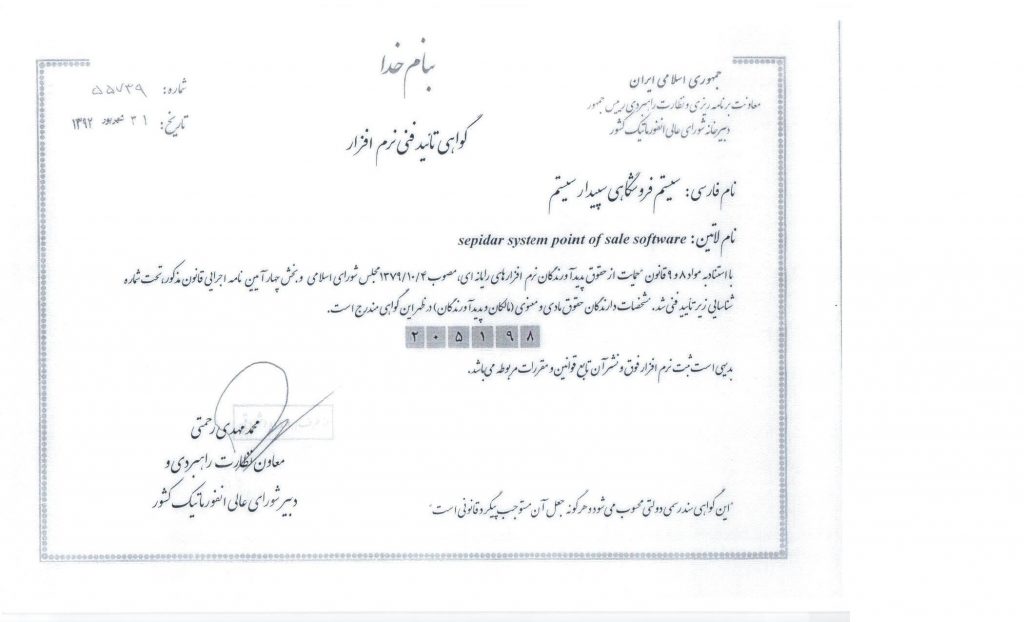 بنام خدا
جمهوری اسلامی ایران
معاونت برنامه ریزی و نظارت راهبردی رییس جمهور
دبیرخانه شورای عالی انفورماتیک کشور
شماره: ۵۵۷۴۹
تاریخ: ۳۱ شهریور ۱۳۹۲
گواهی تائید فنی نرم افزار
نام فارسی: سیستم فروشگاهی سپیدار سیستم
نام لاتین: sepidar system point of sale software
با استناد به مواد ۸ و ۹ قانون حمایت از حقوق پدیدآورندگان نرم افزارهای رایانه ای، مصوب ۱۳۷۹/۱۰/۴ مجلس شورای اسلامی و بخش چهار آیین نامه اجرایی قانون مذکور، تحت شماره
شناسایی زیر تأیید فنی شد. مشخصات دارندگان حقوق مادی و معنوی (مالکان و پدیدآورندگان) در ظهر این گواهی مندرج است.
۲۰۵۱۹۸
بدیهی است ثبت نرم افزار فوق و نشر آن تابع قوانین و مقررات مربوطه می‌باشد.
محمدمهدی رحمتی
معاون نظارت راهبردی و
دبیر شورای عالی انفورماتیک کشور
"این گواهی سند رسمی دولتی محسوب می شود و هر گونه جعل آن مستوجب پیگرد قانونی است"